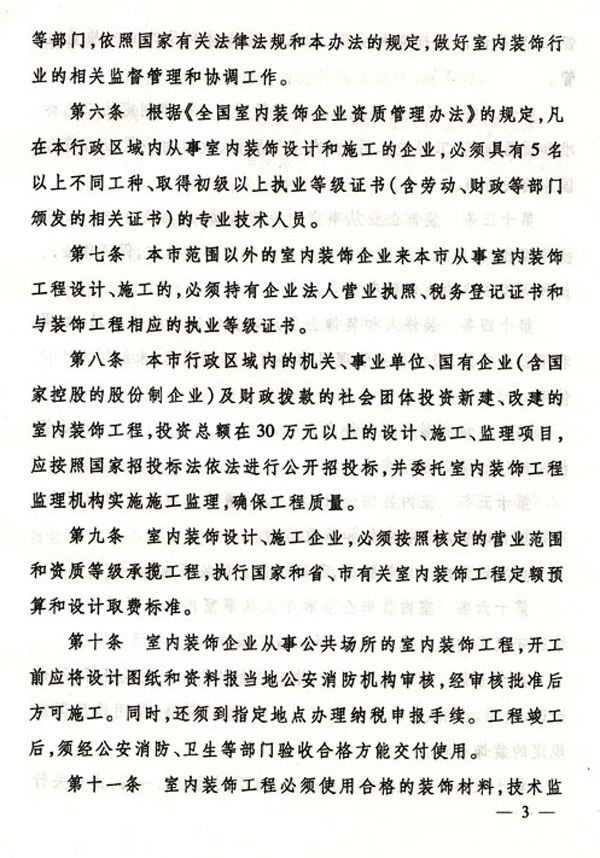 等部门,依照国家有关法律法规和本办法的规定,做好室内装饰行
业的相关监督管理和协调工作。
第六条　根据《全国室内装饰企业资质管理办法》的规定,凡
在本行政区域内从事室内装饰设计和施工的企业,必须具有 5 名
以上不同工种、取得初级以上执业等级证书(含劳动、财政等部门
颁发的相关证书)的专业技术人员。
第七条　本市范围以外的室内装饰企业来本市从事室内装饰
工程设计、施工的,必须持有企业法人营业执照、税务登记证书和
与装饰工程相应的执业等级证书。
第八条　本市行政区域内的机关、事业单位、国有企业(含国
家控股的股份制企业)及财政拨款的社会团体投资新建、改建的
室内装饰工程,投资总额在 30 万元以上的设计、施工、监理项目,
应按照国家招投标法依法进行公开招投标,并委托室内装饰工程
监理机构实施施工监理,确保工程质量。
第九条　室内装饰设计、施工企业,必须按照核定的营业范围
和资质等级承揽工程,执行国家和省、市有关室内装饰工程定额预
算和设计取费标准。
第十条　室内装饰企业从事公共场所的室内装饰工程,开工
前应将设计图纸和资料报当地公安消防机构审核,经审核批准后
方可施工。同时,还须到指定地点办理纳税申报手续。工程竣工
后,须经公安消防、卫生等部门验收合格方能交付使用。
第十一条　室内装饰工程必须使用合格的装饰材料,技术监
— 3 —